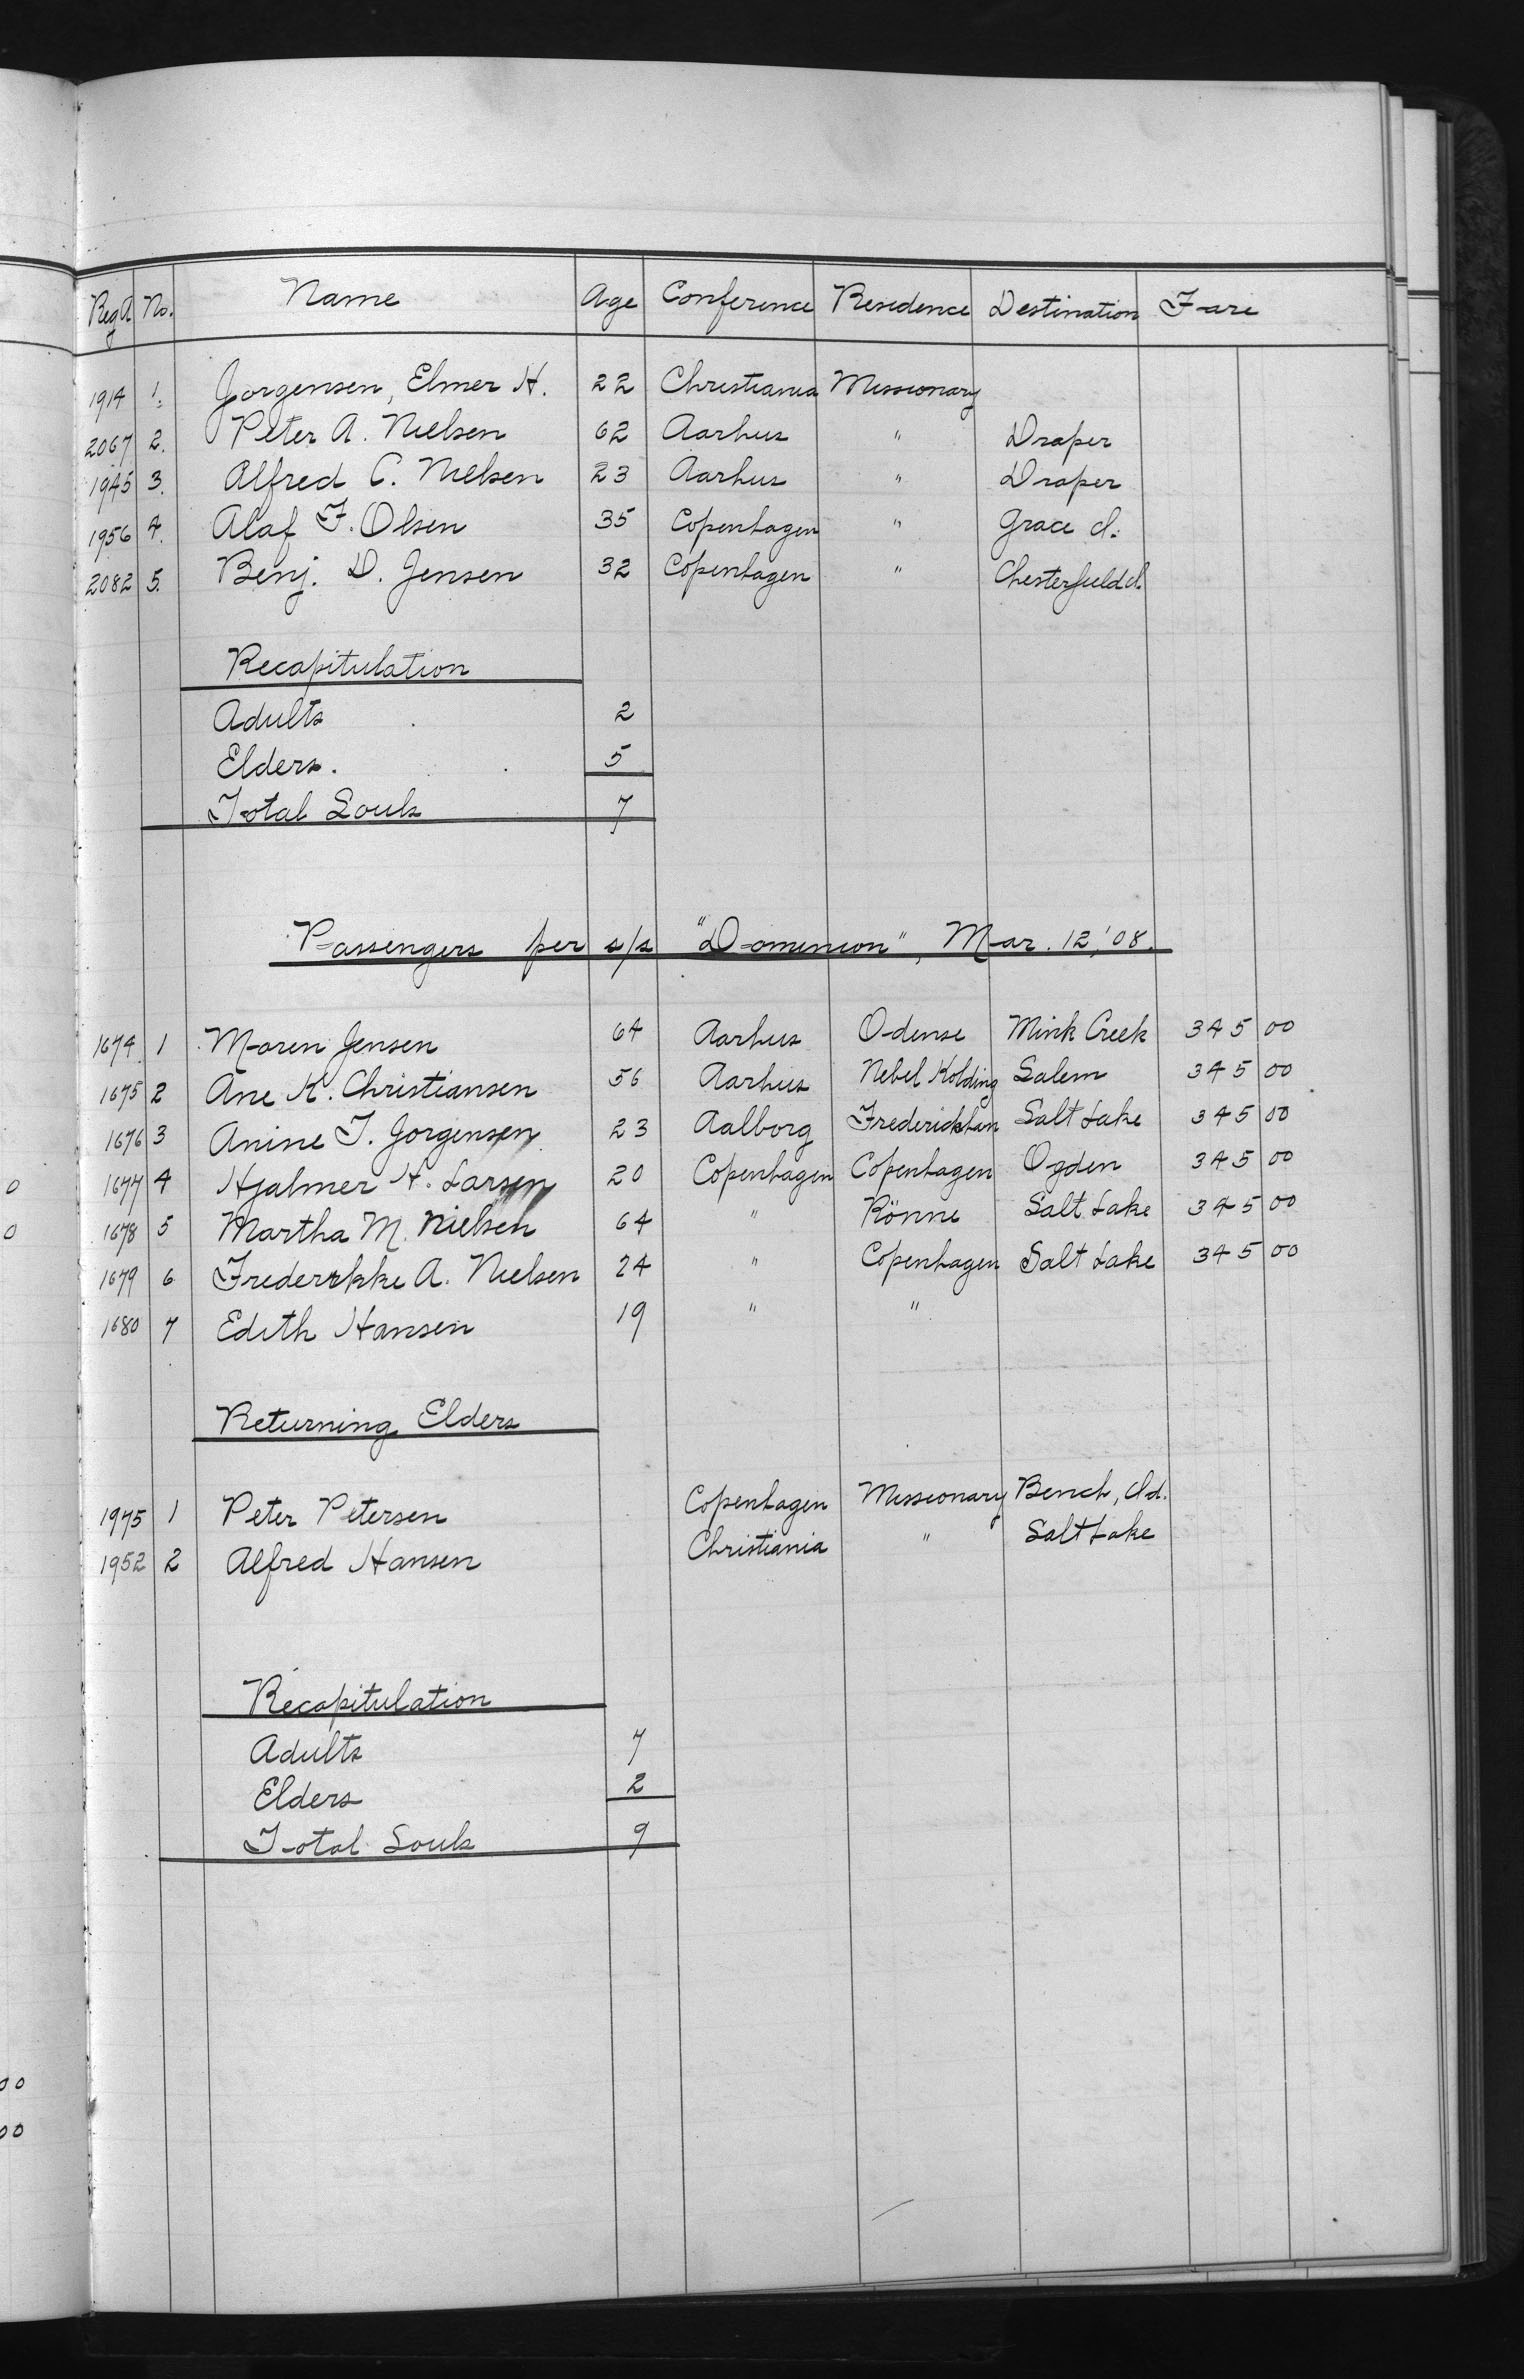 Reg A No. Name Age Conference Residence Destination Fare
1914 1. Jorgensen, Elmer H. 22 Christiania Missionary
2067 2. Peter A. Nielsen 62 Aarhus " Draper
1945 3. Alfred C. Nielsen 23 Aarhus " Draper
1956 4. Alaf F. Olsen 35 Copenhagen " Grace Id.
2082 5. Benj. D. Jensen 32 Copenhagen " Chesterfield Id.
Recapitulation
Adults 2
Elders. 5
Total Souls 7
Passengers per s/s "Dominion", Mar. 12, '08.
1674 1 Maren Jensen 64 Aarhus Odense Mink Creek 345 00
1675 2 Ane K. Christiansen 56 Aarhus Nebel Kolding Salem 345 00
1676 3 Anine J. Jorgensen 23 Aalborg Frederickhan Salt Lake 345 00
0 1677 4 Hjalmer H. Larsen 20 Copenhagen Copenhagen Ogden 345 00
0 1678 5 Martha M. Nielsen 64 " Rönne Salt Lake 345 00
1679 6 Frederikke A. Nielsen 24 " Copenhagen Salt Lake 345 00
1680 7 Edith Hansen 19 " "
Returning Elders
1975 1 Peter Petersen Copenhagen Missionary Bench, Id.
1952 2 Alfred Hansen Christiania " Salt Lake
Recapitulation
Adults 7
Elders 2
Total Souls 9
00
00